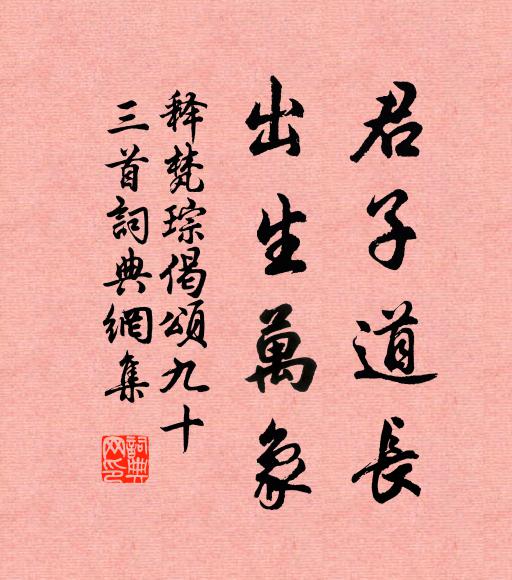 君子道長
出生萬象
释梵琮偈頌九十
三首詞典網集
詞典
网印